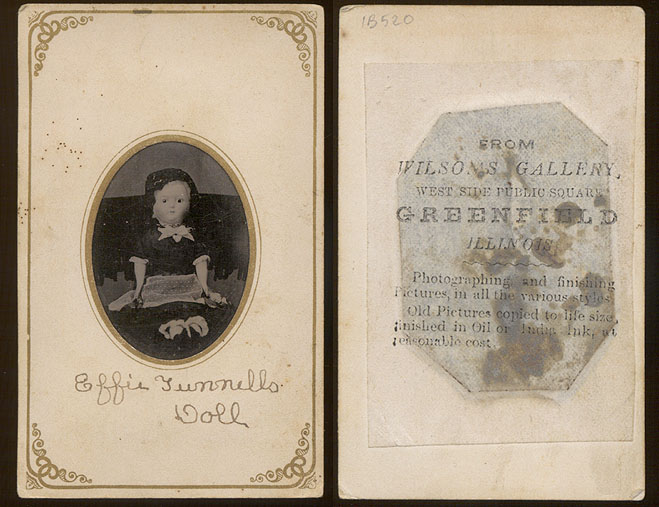 Effie Tunnells
Doll
1B520
FROM
WILSON'S GALLERY,
WEST SIDE PUBLIC SQUARE
GREENFIELD
ILLINOIS
Photographing and finishing
Pictures, in all the various styles
Old Pictures copied to life size
finished in Oil or India Ink, at
reasonable cost